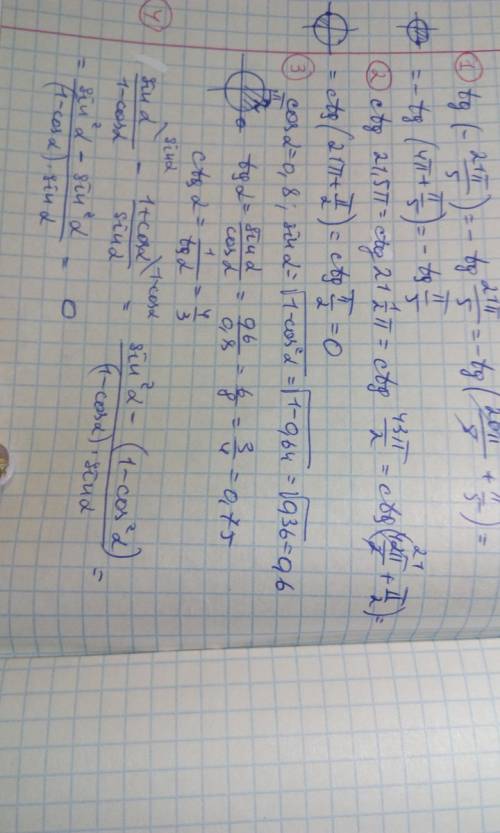 ① tg (- 21π/5) = - tg 21π/5 = - tg (20π/5 + π/5) =
= - tg (4π + π/5) = - tg π/5
② ctg 21,5π = ctg 21 1/2 π = ctg 43π/2 = ctg (42π/2 + π/2) =
= ctg (21π + π/2) = ctg π/2 = 0
③ cosα = 0,8; sinα = √1-cos²α = √1-0,64 = √0,36 = 0,6
tgα = sinα/cosα = 0,6/0,8 = 6/8 = 3/4 = 0,75
ctgα = 1/tgα = 4/3
④ sinα/1-cosα \sinα - 1+cosα/sinα \1-cosα = sin²α - (1-cos²α)/(1-cosα)·sinα =
= sin²α - sin²α/(1-cosα)·sinα = 0